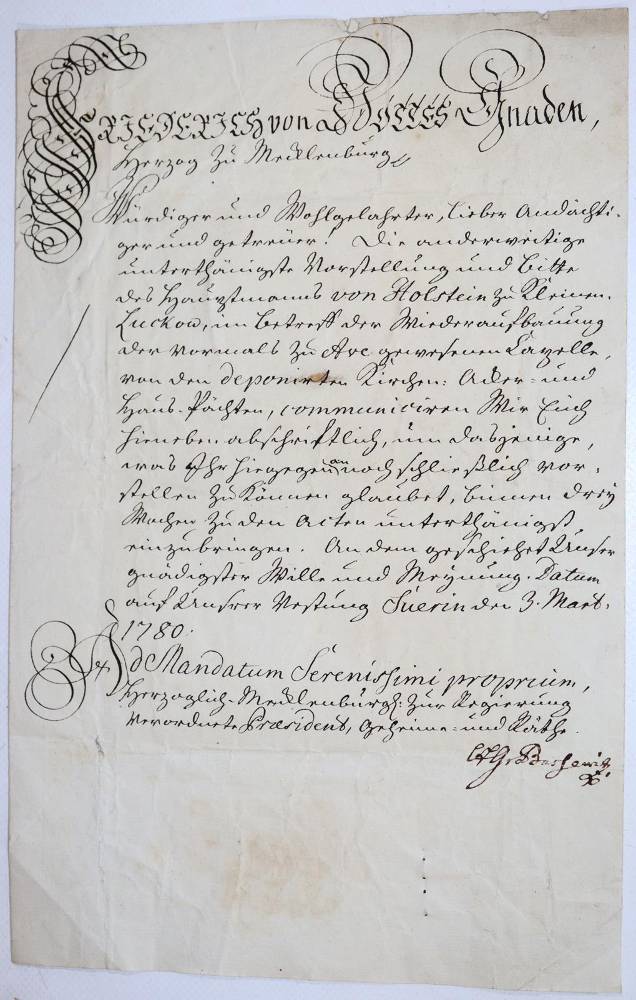 FRIEDERICH von GOTTES Gnaden,
Herzog zu Mecklenburg
Würdiger und Wohlgelahrter, lieber Andächti-
ger und getreuer! Die anderweitige
unterthänigste Vorstellung und Bitte
des Hauptmanns von Holstein zu Kleinen-
Luckow, in Betreff der Wiederaufbauung
der vormals zu gewesenen Capelle,
von den deponirten Kirchen- Acker- und
Haus-Pächten, communiciren Wir Euch
hieneben abschriftlich, um dasjenige,
was Ihr hiegegen an noch schließlich vor-
stellen zu können glaubet, binnen drey
Wochen zu den Acten unterthänigst
einzubringen. An dem geschiehet Unser
gnädigster Wille und Meynung. Datum
auf Unsrer Vestung Suerin den 3. Mart:
1780.
Ad Mandatum Serenissimi proprium,
Herzoglich-Mecklenburgsch: zur Regierung
verordnete Præsident, Geheime- und Räthe.